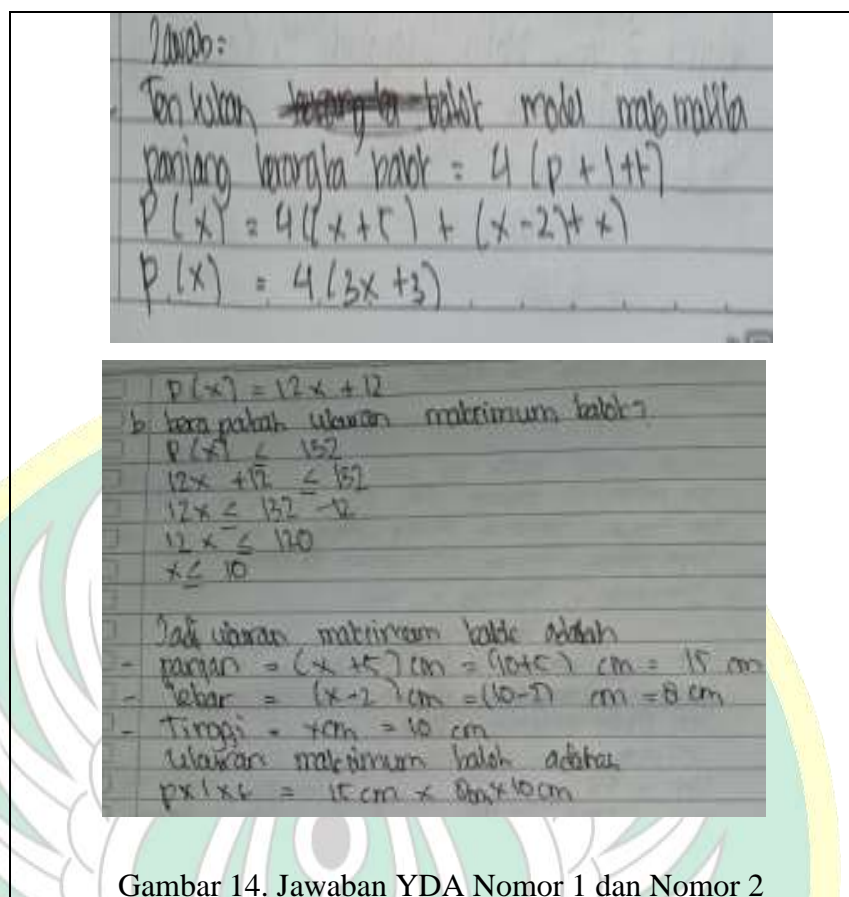 Jawab:
- Tentukan balok model matematika
panjang kerangka balok = 4 (p + l + t)
P(x) = 4((x+5) + (x-2)+x)
P(x) = 4(3x+3)
P(x) = 12x + 12
b. berapakah ukuran maksimum balok?
P(x) ≤ 132
12x + 12 ≤ 132
12x ≤ 132 - 12
12x ≤ 120
x ≤ 10
Jadi ukuran maksimum balok adalah
- panjan = (x+5) cm = (10+5) cm = 15 cm
- lebar = (x-2) cm = (10-2) cm = 8 cm
- Tinggi = x cm = 10 cm
ukuran maksimum balok adalah
p x l x t = 15 cm x 8cm x 10 cm
Gambar 14. Jawaban YDA Nomor 1 dan Nomor 2